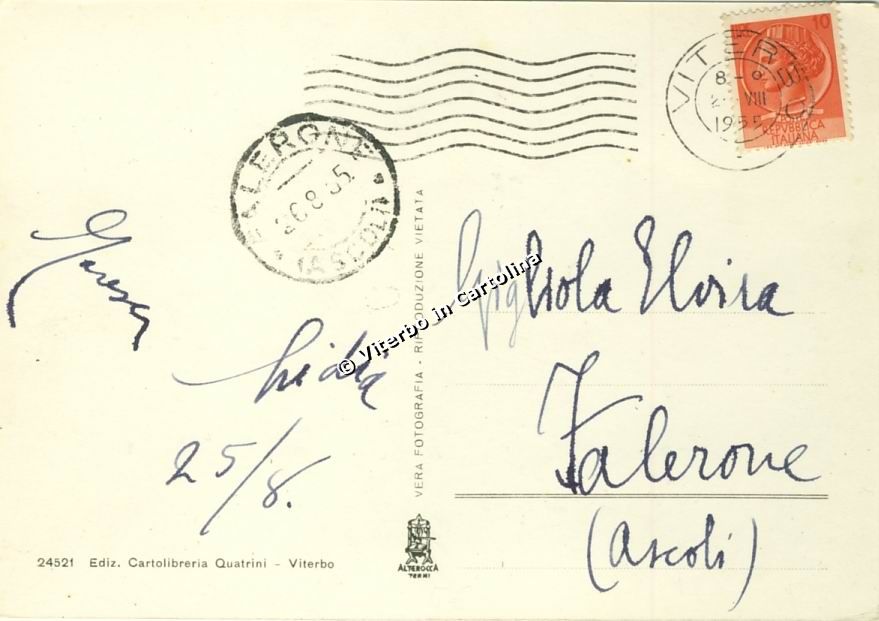 10
VITERBO
8 - 9
VIII
1955
REPVBBLICA
ITALIANA
FALERONE
26.8.55
(ASCOLI)
Lidia
25/8.
Gigliola Elvira
Falerone
(Ascoli)
© Viterbo in Cartolina
VERA FOTOGRAFIA - RIPRODUZIONE VIETATA
24521 Ediz. Cartolibreria Quatrini - Viterbo
ALTEROCCA
TERNI